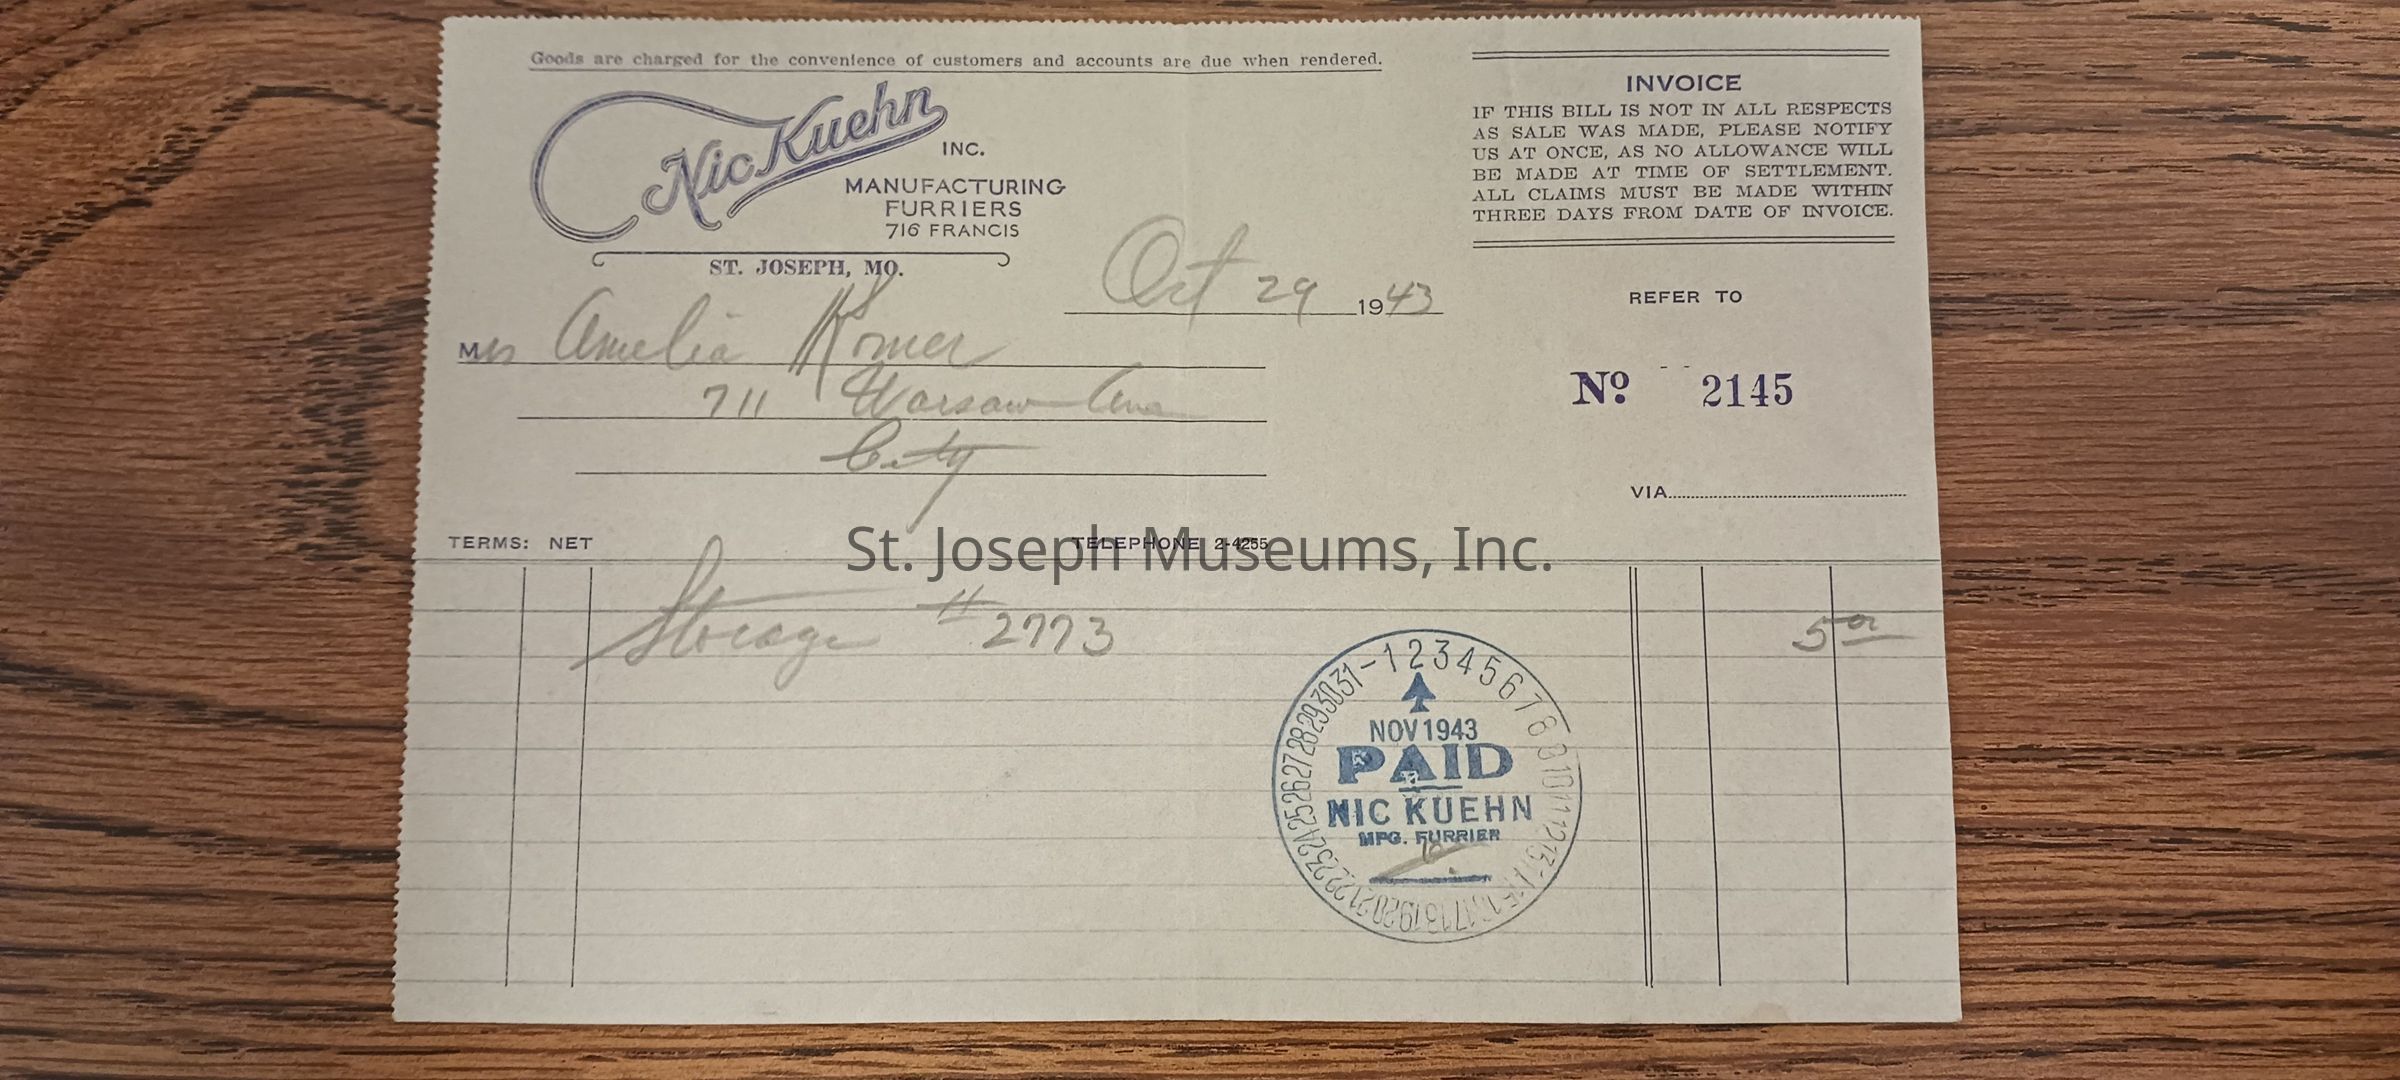 Goods are charged for the convenience of customers and accounts are due when rendered.
Nic Kuehn
INC.
MANUFACTURING
FURRIERS
716 FRANCIS
ST. JOSEPH, MO.
INVOICE
IF THIS BILL IS NOT IN ALL RESPECTS
AS SALE WAS MADE, PLEASE NOTIFY
US AT ONCE, AS NO ALLOWANCE WILL
BE MADE AT TIME OF SETTLEMENT.
ALL CLAIMS MUST BE MADE WITHIN
THREE DAYS FROM DATE OF INVOICE.
Oct 29 1943
REFER TO
Mrs Amelia
711 Warsaw Ave
City
No 2145
VIA
TERMS: NET
TELEPHONE 2-4255
St. Joseph Museums, Inc.
Storage #2773
5 00
1 2 3 4 5 6 7 8 9 10 11 12 13 14 15 16 17 18 19 20 21 22 23 24 25 26 27 28 29 30 31
NOV 1943
PAID
NIC KUEHN
MFG. FURRIER